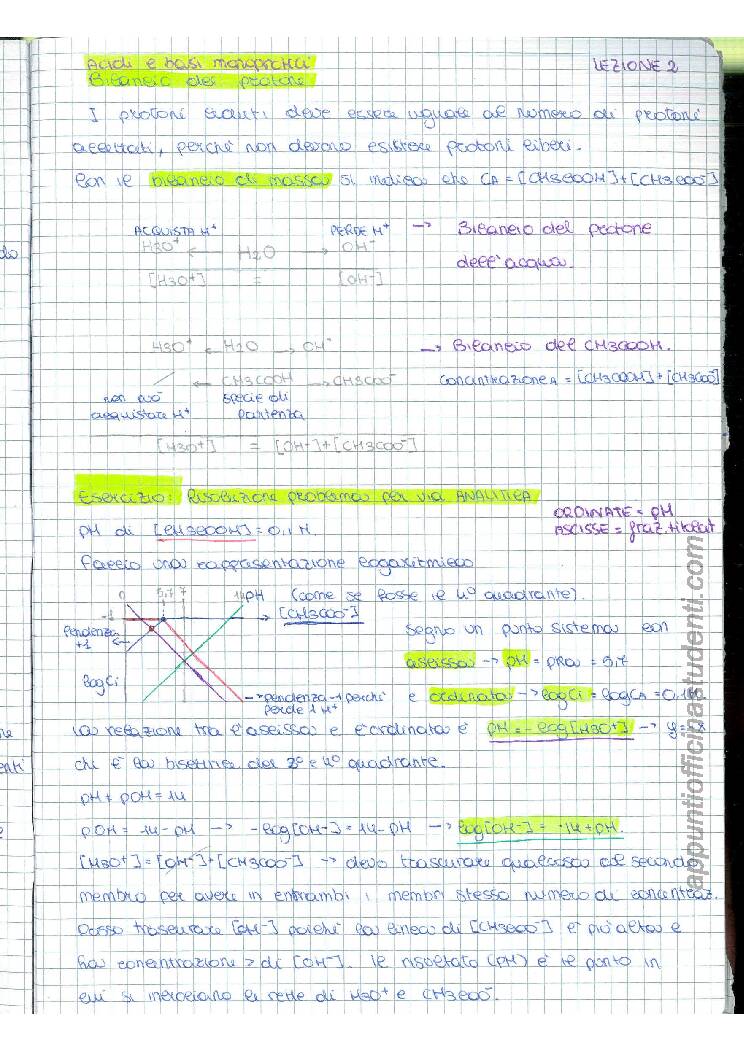 Acidi e basi monoprotici
LEZIONE 2
Bilancio del protone
I protoni ceduti deve essere uguale al numero di protoni
accettati, perchè non devono esistere protoni liberi.
Con il bilancio di massa si indica che CA = [CH3COOH]+[CH3COO-]
ACQUISTA H+ PERDE H+ → Bilancio del protone
H3O+ ← H2O → OH-
dell'acqua.
[H3O+] = [OH-]
H3O+ ← H2O → OH- → Bilancio del CH3COOH.
← CH3COOH → CH3COO- concentrazione A = [CH3COOH]+[CH3COO]
non può specie di
acquistare H+ partenza
[H3O+] = [OH-]+[CH3COO-]
Esercizio: Risoluzione problema per via ANALITICA
ORDINATE = pH
pH di [CH3COOH] = 0,1 M.
ASCISSE =
Faccio una rappresentazione logaritmica
0 5,7 7 14 pH (come se fosse il 4° quadrante).
-1 [CH3COO-]
Pendenza +1
segno un punto sistema con
ascissa → pH = pKa = 5,7
logCi
e ordinata → logCi = logCA =
→ pendenza -1 perchè
perde 1 H+
La relazione tra l'ascissa e l'ordinata è pH = -log[H3O+] →
che è la bisettrice del 2° e 4° quadrante.
pH + pOH = 14
pOH = 14-pH → -log[OH-] = 14-pH → log[OH-] = -14+pH.
[H3O+] = [OH-]+[CH3COO-] → devo trascurare qualcosa al secondo
membro per avere in entrambi i membri stesso numero di concentraz.
Posso trascurare [OH-] poichè la linea di [CH3COO-] è più alta e
ha concentrazione > di [OH-]. Il risultato (pH) è il punto in
cui si incrociano le rette di H3O+ e CH3COO-.
appuntiofficinastudenti.com